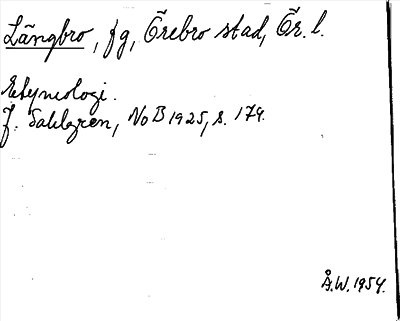 Längbro, fg, Örebro stad, Ör. l.
Etymologi.
J. Sahlgren, NoB 1925, s. 179.
Å.W. 1954.